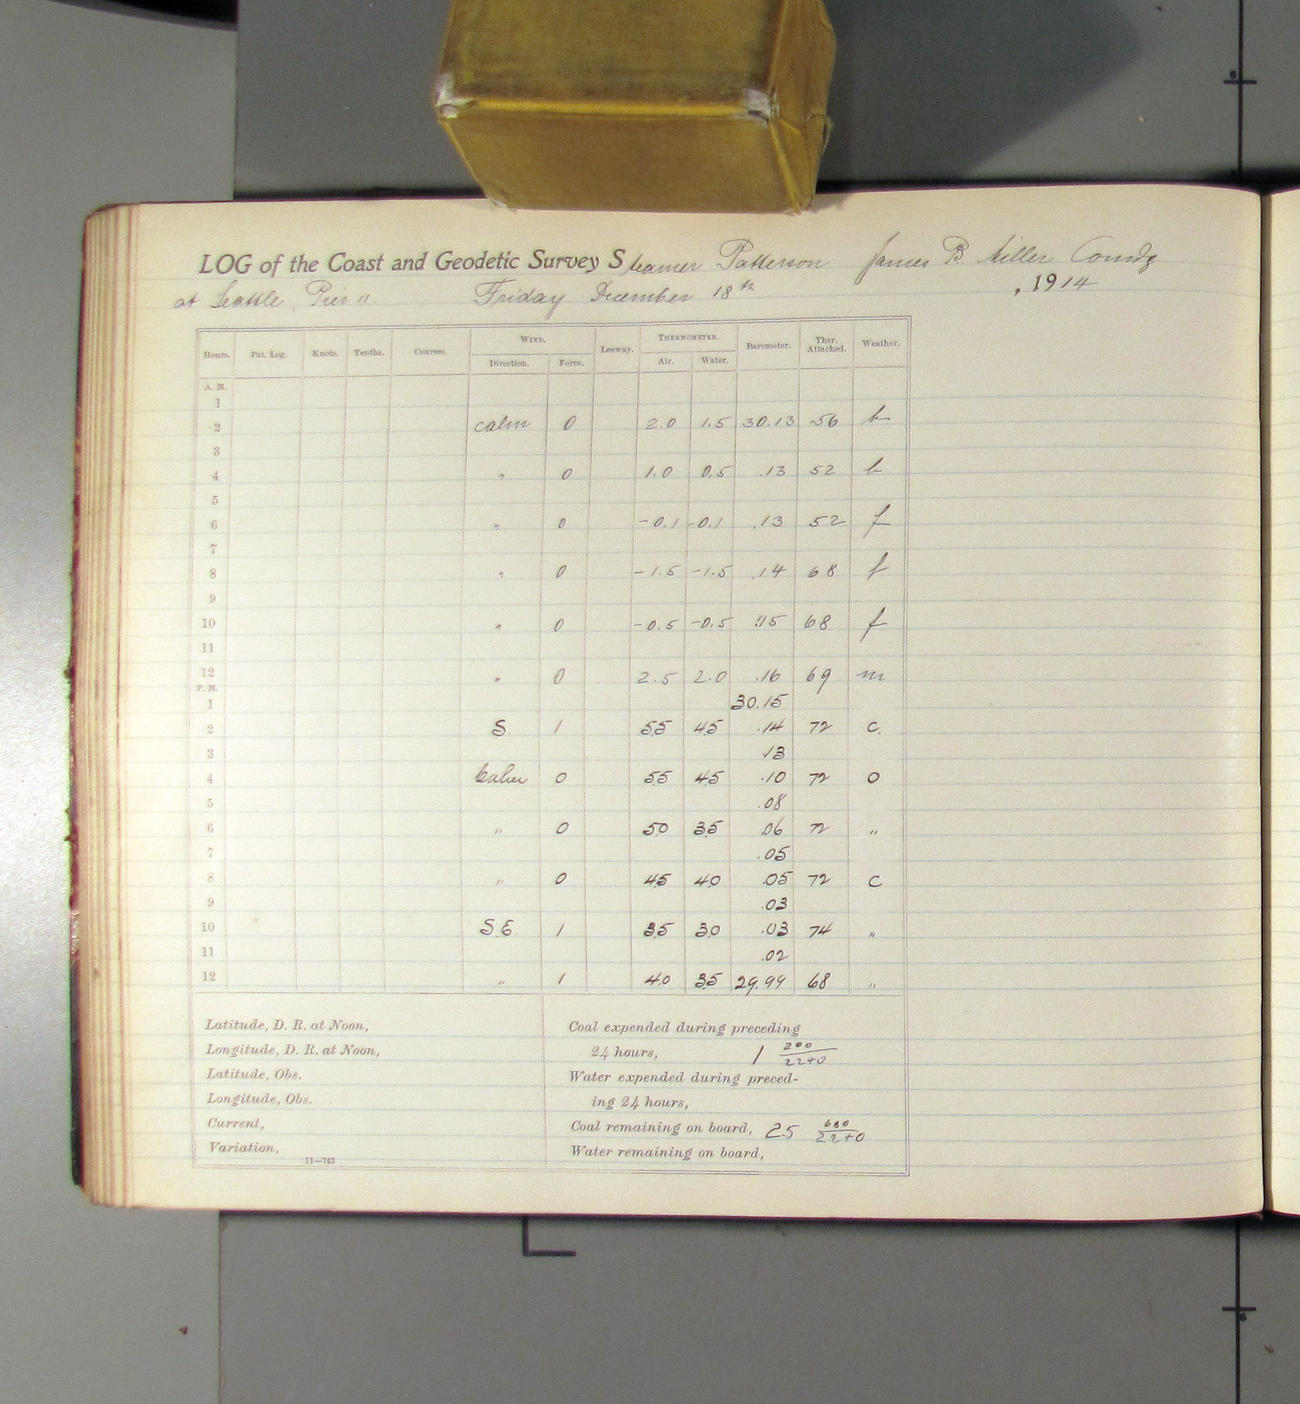 LOG of the Coast and Geodetic Survey Steamer Patterson James B. Miller Comdg
at Seattle, Pier 11. Friday December 18th, 1914
Hours. Pat. Log. Knots. Tenths. Courses. WIND. Leeway. THERMOMETER. Barometer. Ther. Attached. Weather.
Direction. Force. Air. Water.
A. M.
1
2 calm 0 2.0 1.5 30.13 56 b
3
4 " 0 1.0 0.5 .13 52 b
5
6 " 0 -0.1 -0.1 .13 52 f
7
8 " 0 -1.5 -1.5 .14 68 f
9
10 " 0 -0.5 -0.5 .15 68 f
11
12 " 0 2.5 2.0 .16 69 m
P. M.
1 30.15
2 S. 1 5.5 4.5 .14 72 c.
3 .13
4 Calm 0 5.5 4.5 .10 72 o
5 .08
6 " 0 5.0 3.5 .06 72 "
7 .05
8 " 0 4.5 4.0 .05 72 c
9 .03
10 S.E. 1 3.5 3.0 .03 74 "
11 .02
12 " 1 4.0 3.5 29.99 68 "
Latitude, D. R. at Noon,
Longitude, D. R. at Noon,
Latitude, Obs.
Longitude, Obs.
Current,
Variation,
11—763
Coal expended during preceding
24 hours, 1 200/2240
Water expended during preced-
ing 24 hours,
Coal remaining on board, 25 680/2240
Water remaining on board,